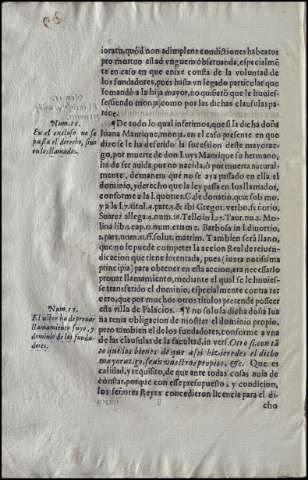 ioratu, quòd non adimplens conditiones habeatur
pro mortuo assi ad vnguem obseruanda, especialmē
te en caso en que entre consta de la voluntad de
los fundadores, pues hasta vn legado particular que
se manda a la hija mayor, no quisierō que le huuies-
se siendo monja, como por las dichas clausulas pa-
rece.
De todo lo qual inferimos, que si la dicha doña
Iuana Manrique, monja, en el caso presente en que
dize se le ha deferido la sucession deste mayoraz-
go, por muerte de don Luys Manrique su hermano,
ha de ser auida, por no nacida, ò por muerta natural-
mente, demanera que no se aya passado en ella el
dominio, y derecho que la ley passa en los llamados,
conforme a la
y a la l. 7. titul. 4. parte. 6. ibi Gregor. verbo, seruorio,
Suarez allega. 9. num. 16. Tello in l. 27. Taur. nu. 2. Mo
lina lib. 4. cap. 11. num. extrem. Barbosa in l. diuortio,
2. part. num. 11. ff. solut. matrim. Tambien serà llano,
que no le puede competer la accion Real de reiuen-
dicacion que tiene intentada, pues (iuxta notissima
principia) para obtener en esta accion, era necessario
prouar llamamiento, mediante el qual se le huuies-
se transferido el dominio, especialmente contra ter
cero, que por muchos otros titulos pretende posseer
esta villa de Palacios. ¶ Y no solo la dicha doña Iua
na tenia obligacion de mostrar el dominio propio,
pero tambien el de los fundadores, conforme a vna
de las clausulas de la facultad, in vers. Otro si, con tā
to que los bienes de que assi hizieredes el dicho
mayorazgo, sean vuestros propios, &c. Que es
calidad, y requisito, de que ante todas cosas auia de
constar, porque con esse presupuesto, y condicion,
los señores Reyes concedieron licencia para el di-
cho
Num. 12.
En el excluso no se
passa el derecho, sino
en los llamados.
Num. 13.
El actor ha de prouar
llamamiento suyo, y
dominio de los funda-
dores.